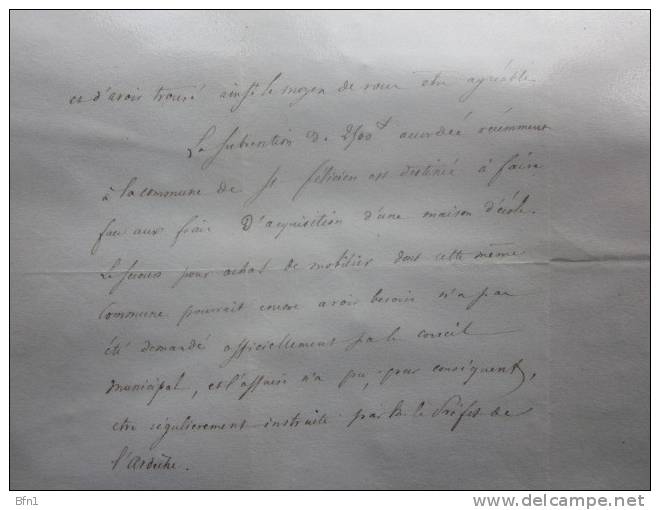 et d'avoir trouvé ainsi le moyen de vous être agréable
La subvention de 2500f accordée récemment
à la commune de St félicien est destinée à faire
face aux frais D'acquisition d'une maison d'école.
Le secours pour achat de mobilier dont cette même
Commune pourrait encore avoir besoin n'a pas
été demandé officiellement par le conseil
municipal, et l'affaire n'a pu, par conséquent,
etre régulierement instruite par M. le Préfet de
l'Ardèche.
Bfn1
delcampe.net